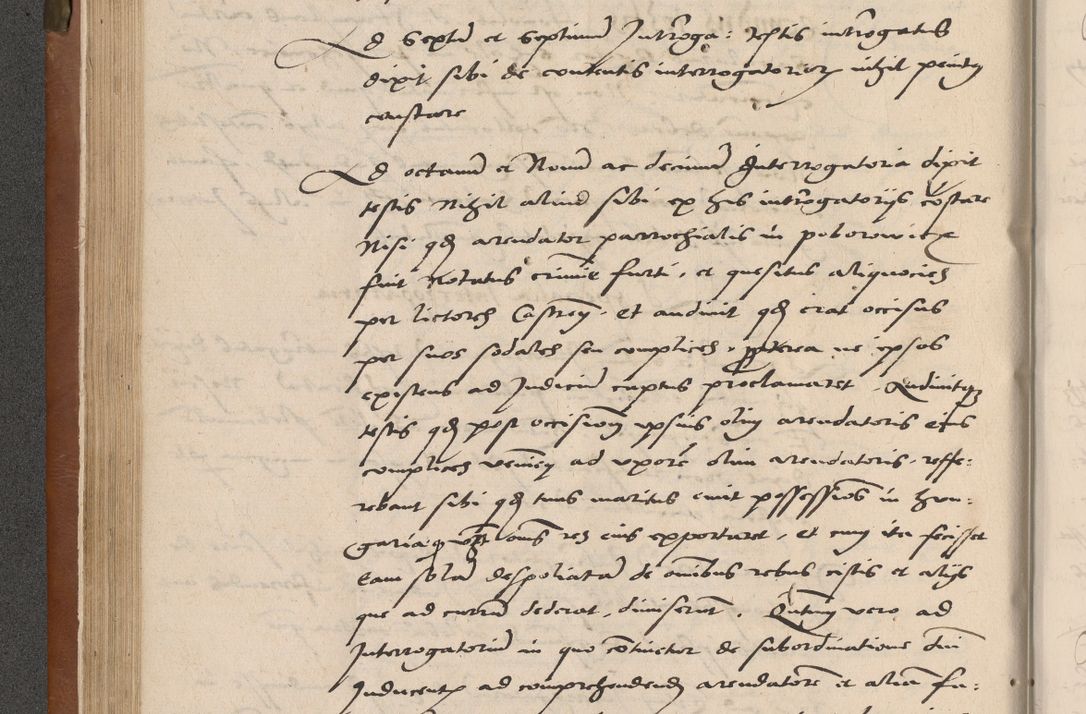 Ad Sextu et Septimu Introga: testis introgatus
dixit sibi de contentis interrogatorior nihil penitq
constare
Ad octauu et Nonu ac decimu Interrogatoria dixit
testis Nihil aliud sibi ex his introgatorijs costare
Nisi qd arendator parrochialis in poborowicze
fuit Notatus crimie furti, et quesitus aliquocies
per lictores Castren. Et audiuit qd erat occisus
per suos sodales seu complices, propterea ne ipsos
existens ad Judiciu captus proclamaret. Audiuitq
testis qd post occisione ipsius olim arendatoris eius
complices venien ad vxore olim arendatoris, reffe:
rebant sibi qd tuus maritus emit possessios in Hun:
garia, vt oms res eius exportaret, et cum ita fecisset
Eam sola despoliata de omibus rebus cistis et alijs
que ad curru dederat, diuiserut. Quatum vero ad
Interrogatoriu in quo cotinetur de subordinatione dni
Inducent ad comprehendend arendatore et alia fa: